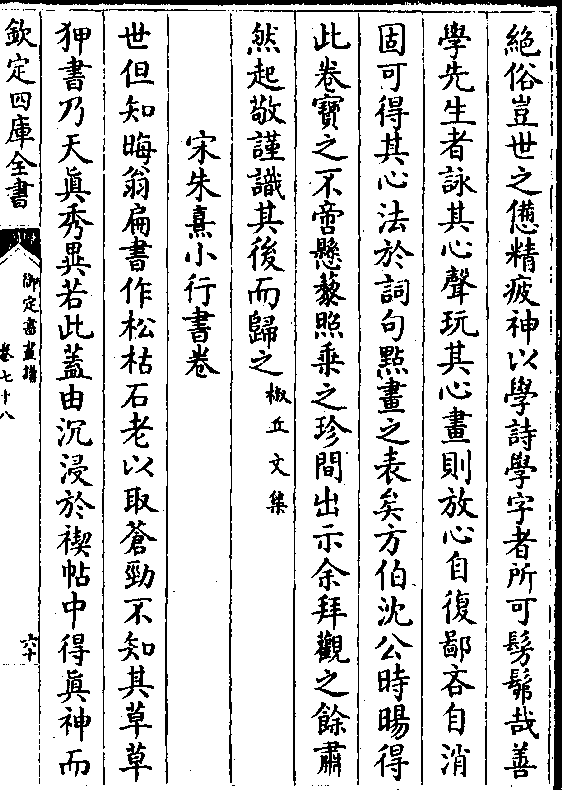 絶俗豈世之憊精疲神以學詩學字者所可髣髴哉善
學先生者詠其心聲玩其心畫則放心自復鄙吝自消
固可得其心法於詞句點畫之表矣方伯沈公時暘得
此卷寶之不啻懸藜照乗之珍間出示余拜觀之餘肅
然起敬謹識其後而歸之椒丘文集
宋朱熹小行書卷
世但知晦翁扁書作松枯石老以取蒼勁不知其草草
狎書乃天真秀異若此蓋由沉浸於禊帖中得真神而
欽定四庫全書
御定書畫譜
卷七十八
六十